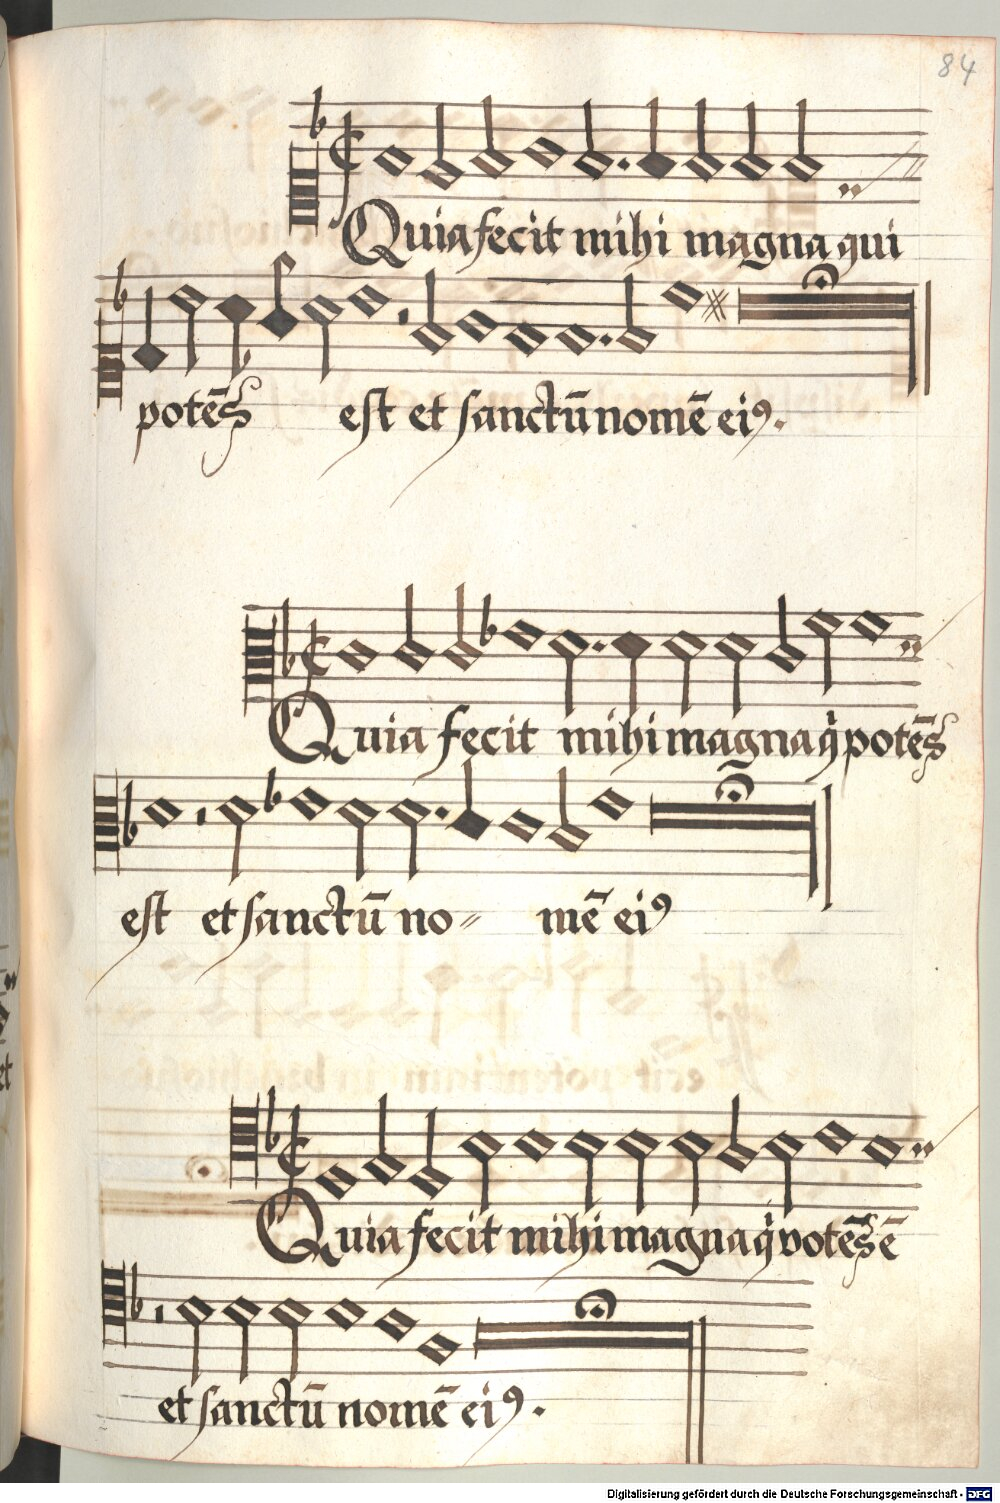 84
Quia fecit mihi magna qui
potēs est et sanctū nomē eiꝰ.
Quia fecit mihi magna q̇ potēs
est et sanctū no〃 mē eiꝰ
Quia fecit mihi magna q̇ potēs ē
et sanctū nomē eiꝰ.
Digitalisierung gefördert durch die Deutsche Forschungsgemeinschaft - DFG